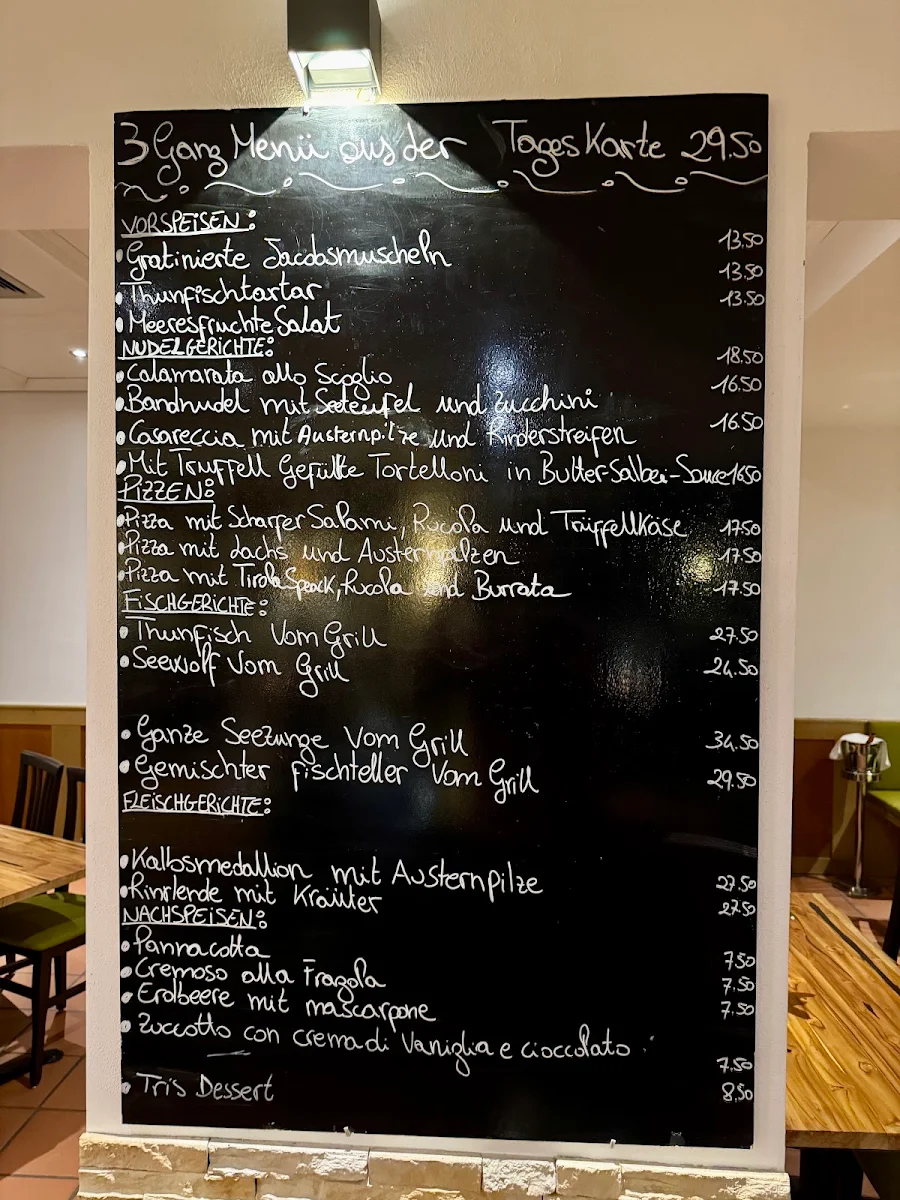 3 Ganz Menü aus der Tages Karte 29.50
VORSPEISEN:
• Gratinierte Jacobsmuscheln 13.50
• Thunfischtartar 13.50
• Meeresfruchte Salat 13.50
NUDELGERICHTE:
• Calamarata allo Scoglio 18.50
• Bandnudel mit Seeteufel und Zucchini 16.50
• Casareccia mit Austernpilze und Rinderstreifen 16.50
• Mit Truffell Gefüllte Tortelloni in Butter-Salbei-Sauce 16.50
PIZZEN:
• Pizza mit Scharfer Salami, Rucola und TrüffellKäse 17.50
• Pizza mit dachs und Austernpilzen 17.50
• Pizza mit Tirola Speck, Rucola und Burrata 17.50
FISCHGERICHTE:
• Thunfisch Vom Grill 27.50
• Seewolf Vom Grill 24.50
• Ganze Seezunge Vom Grill 34.50
• Gemischter fischteller Vom Grill 29.50
FLEISCHGERICHTE:
• Kalbsmedallion mit Austernpilze 27.50
• Rinrlende mit Kräuter 27.50
NACHSPEISEN:
• Pannacotta 7.50
• Cremoso alla Fragola 7.50
• Erdbeere mit mascarpone 7.50
• Zuccotto con crema di Vaniglia e cioccolato 7.50
• Tris Dessert 8.50